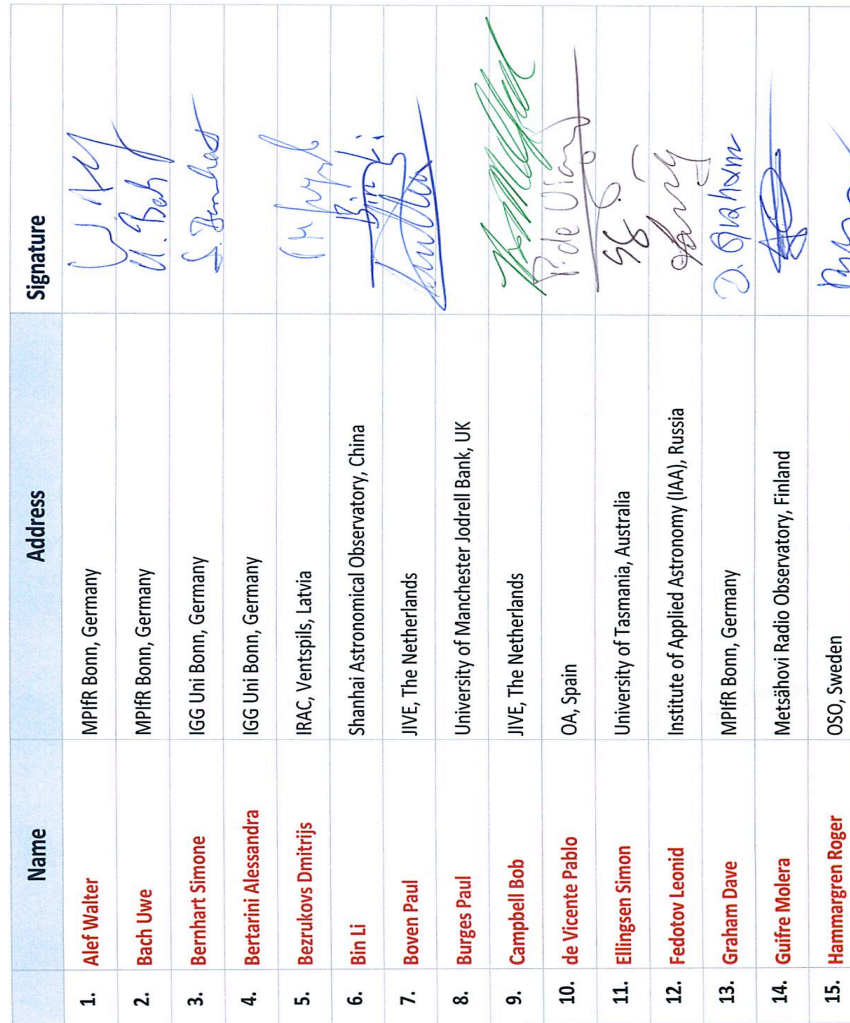 Name Address Signature
1. Alef Walter MPIfR Bonn, Germany
2. Bach Uwe MPIfR Bonn, Germany U. Bach
3. Bernhart Simone IGG Uni Bonn, Germany S. Bernhart
4. Bertarini Alessandra IGG Uni Bonn, Germany
5. Bezrukovs Dmitrijs IRAC, Ventspils, Latvia
6. Bin Li Shanhai Astronomical Observatory, China Bin Li
7. Boven Paul JIVE, The Netherlands
8. Burges Paul University of Manchester Jodrell Bank, UK
9. Campbell Bob JIVE, The Netherlands
10. de Vicente Pablo OA, Spain P. de
11. Ellingsen Simon University of Tasmania, Australia
12. Fedotov Leonid Institute of Applied Astronomy (IAA), Russia
13. Graham Dave MPIfR Bonn, Germany D. Graham
14. Guifre Molera Metsähovi Radio Observatory, Finland
15. Hammargren Roger OSO, Sweden